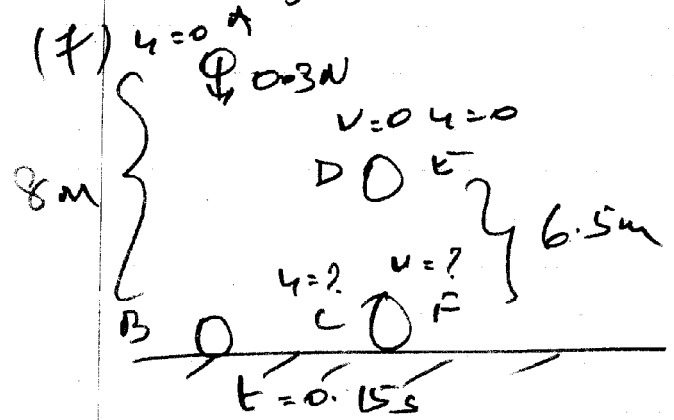 (7) u=0 A
0.3N
V=0 u=0
D E
8m
6.5m
u=? v=?
B C F
t=0.15s